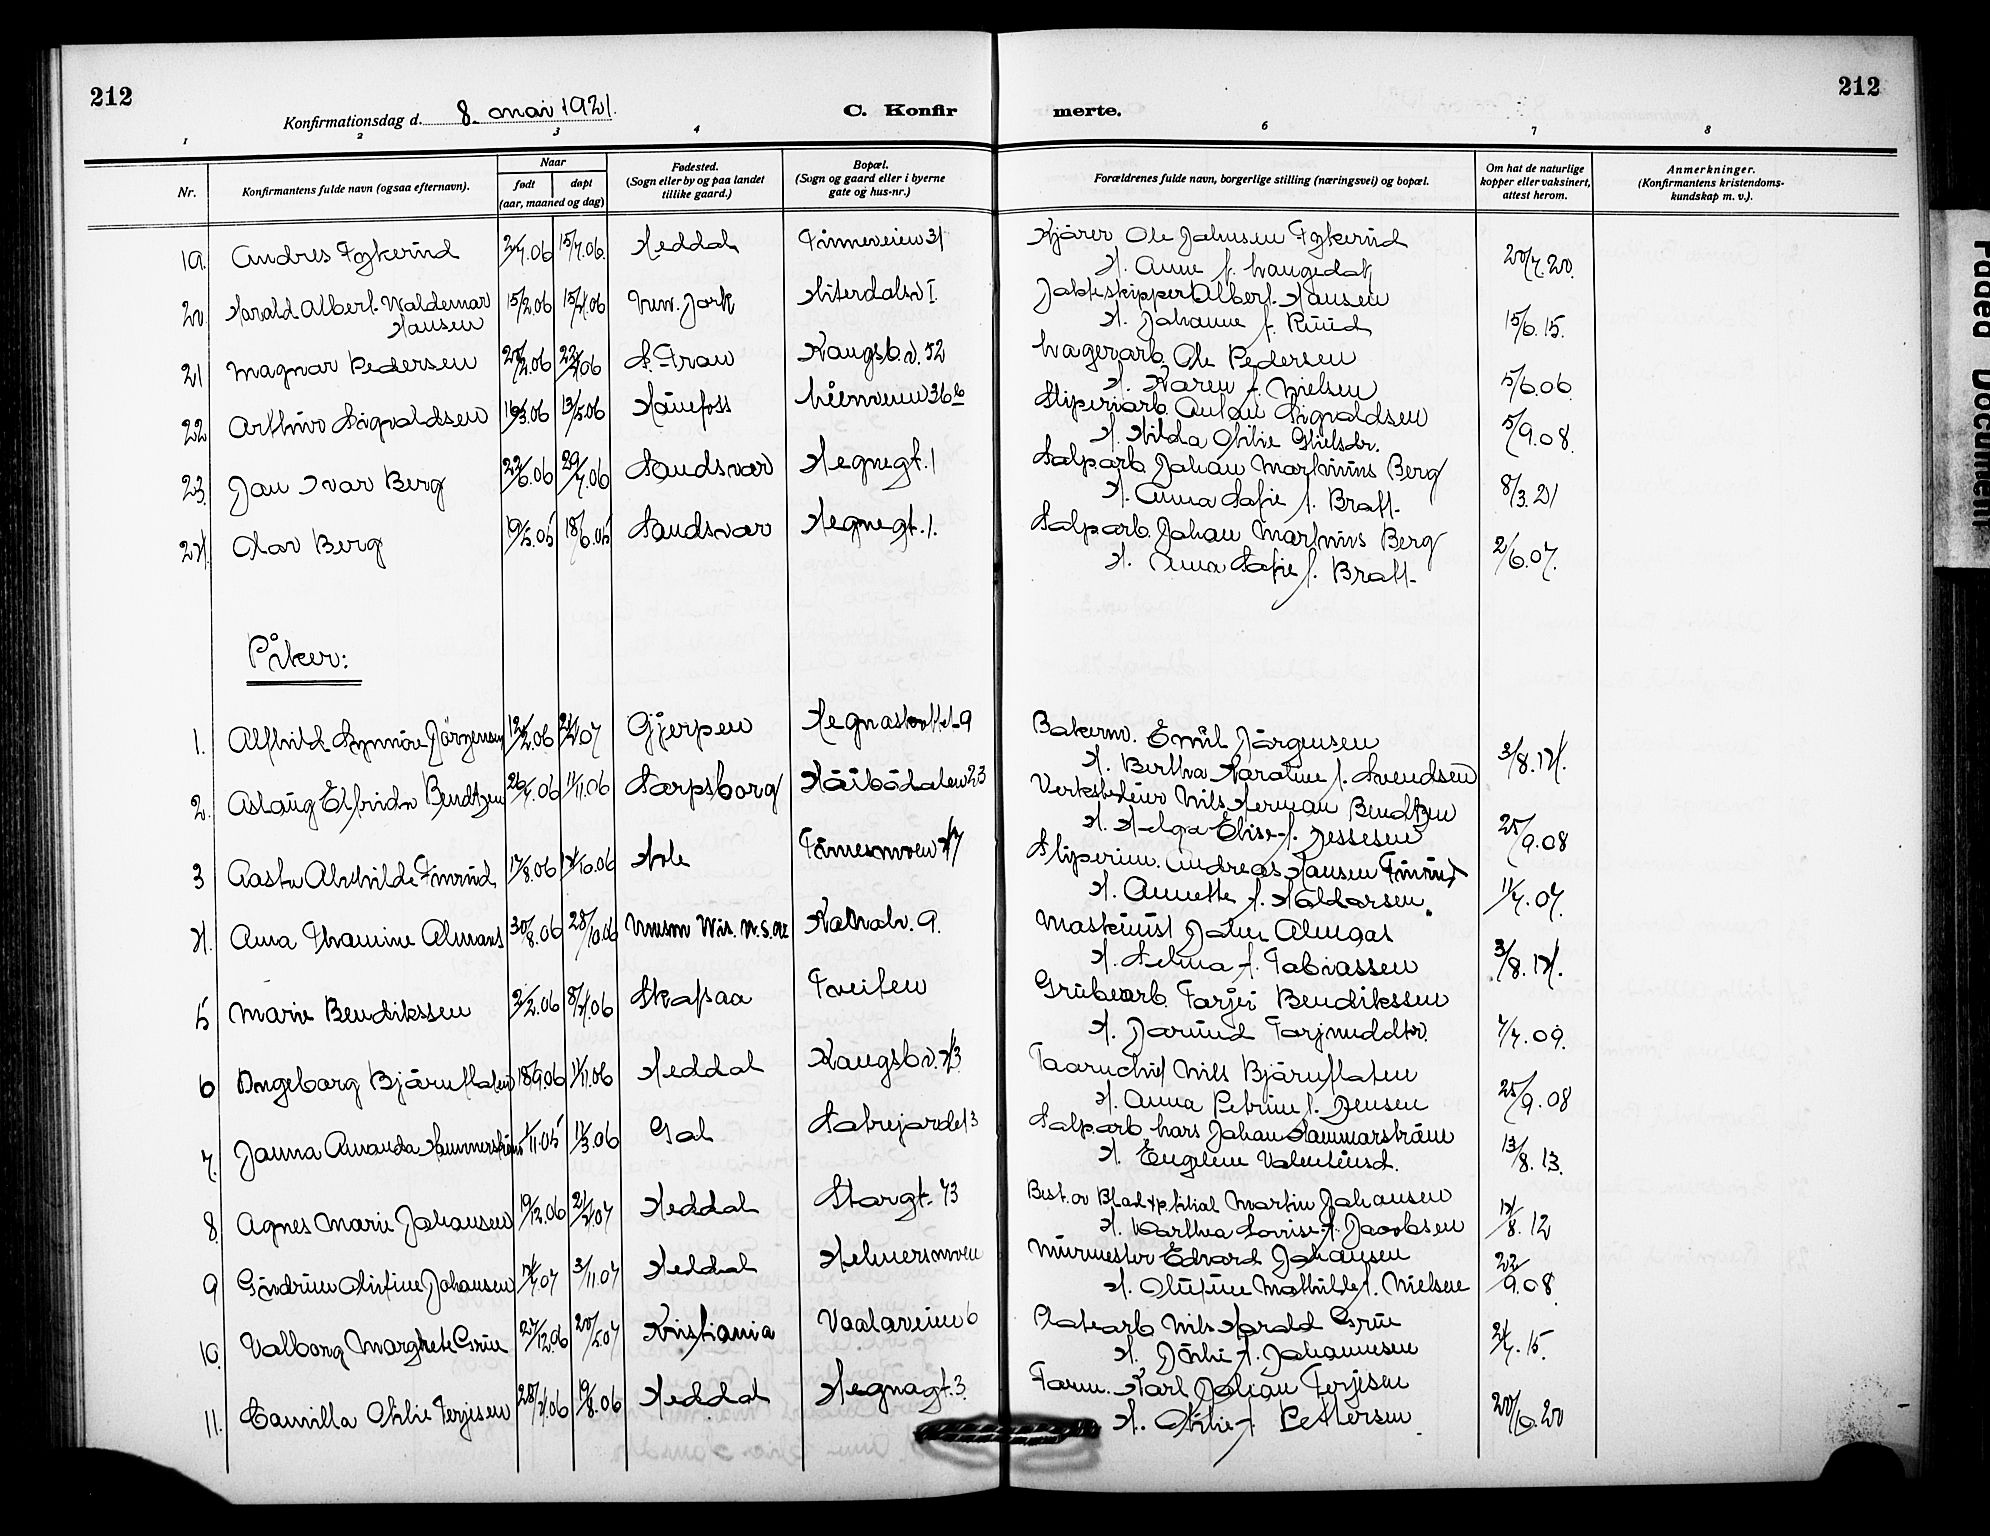 212
212
Konfirmationsdag d. 8. mai 1921.
C. Konfir
merte.
1 2 3 4 6 7 8
Nr.
Konfirmantens fulde navn (ogsaa efternavn).
Naar
født døpt
(aar, maaned og dag)
Fødested.
(Sogn eller by og paa landet
tillike gaard.)
Bopæl.
(Sogn og gaard eller i byerne
gate og hus-nr.)
Forældrenes fulde navn, borgerlige stilling (næringsvei) og bopæl.
Om hat de naturlige
kopper eller vaksinert,
attest herom.
Anmerkninger.
(Konfirmantens kristendoms-
kundskap m. v.).
19. Andres Fykerud 2/4.06 15/7.06. Heddal 31 Kjører Ole Johnsen Fykerud 20/7.20.
H. Anne f.
20. Harald Albert Waldemar 15/2.06 15/4.06 New. Jork Hiterdalsv I. Jakteskipper Albert Hansen
Hansen H. Johanne f. Ruud 15/6.15.
21 Magnar Pedersen S. Fron Kongsb.v. 52 Lagerarb. Ole Pedersen
H. Karen f. Nielsen 5/6.06
22 Arthur Sigvaldsen 16/3.06 13/5.06 Hønefoss 36 b Sliperiarb. Anton Sigvaldsen
H. Hilda Otilie 5/9.08.
23. Jan Ivar Berg 22/6.06 29/7.06 Sandsvær Hegnegt. 1 Salparb. Johan Martinius Berg
H. Anna Sofie f. Bratt. 8/3.21
24. Olav Berg 19/5.05 18/6.05 Sandsvær Hegnegt. 1. Salparb. Johan Martinius Berg
H. Anna Sofie f. Bratt. 2/6.07.
Piker:
1. Alfhild Synnøve Jörgensen 12/12.06 Gjerpen 9 Bakerm. Emil Jörgensen
H. Bertha Karoline f. Svendsen 3/8.14.
2. Aslaug Elfrida Bendtzen 26/7.06 1/11.06 Sarpsborg 23 Nils Herman Bendtzen
H. Helga Elise f. Jessesen 25/9.08
3 Aasta Alvhilde Finrud 17/8.06 14/10.06 Hole Andreas Hansen Finrud
H. Annette f. Haldorsen. 11/7.07.
4. Anna Thomine Almaas 30/8.06 28/10.06 9. Maskinist John Almaas
H. Selma f. Tobiassen 3/8.14.
5 Marie Bendikssen 2/2.06 8/4.06 Skafsaa Tveiten Grubearb. Torjei Bendikssen
H. Jorund 7/7.09.
6 Ingeborg Bjørnflaten 18/9.06 1/11.06 Heddal Kongsb.v. 43 Nils Bjørnflaten
H. Anna Petrine f. Jensen 25/9.08
7. Janna Amanda Hammerstrøm 1/11.05 11/3.06 Gol 3 Salparb. Lars Johan Hammarstrøm
H. Eugelene 13/8.13.
8. Agnes Marie Johansen 19/12.06 21/4.07 Heddal Storgt. 73 Best. av Martin Johansen
H. Marthea Lovise f. Jacobsen 14/8.12
9 Gudrun Olufine Johansen 14/7.07 3/11.07 Heddal Helmersmoen Murmester Edvard Johansen
H. Olufine Mathilde f. Nielsen 22/9.08.
10. Valborg Margrete Grue 27/12.06 20/5.07 Kristiania Vaalaveien 6 Nils Harald Grue
H. f. Johannesen
11. Camilla Otilie Terjesen 28/4.06 19/8.06 Heddal Hegnagt. 3. Form. Karl Johan Terjesen
H. Otilie f. Pettersen 20/6.20
Faded Document